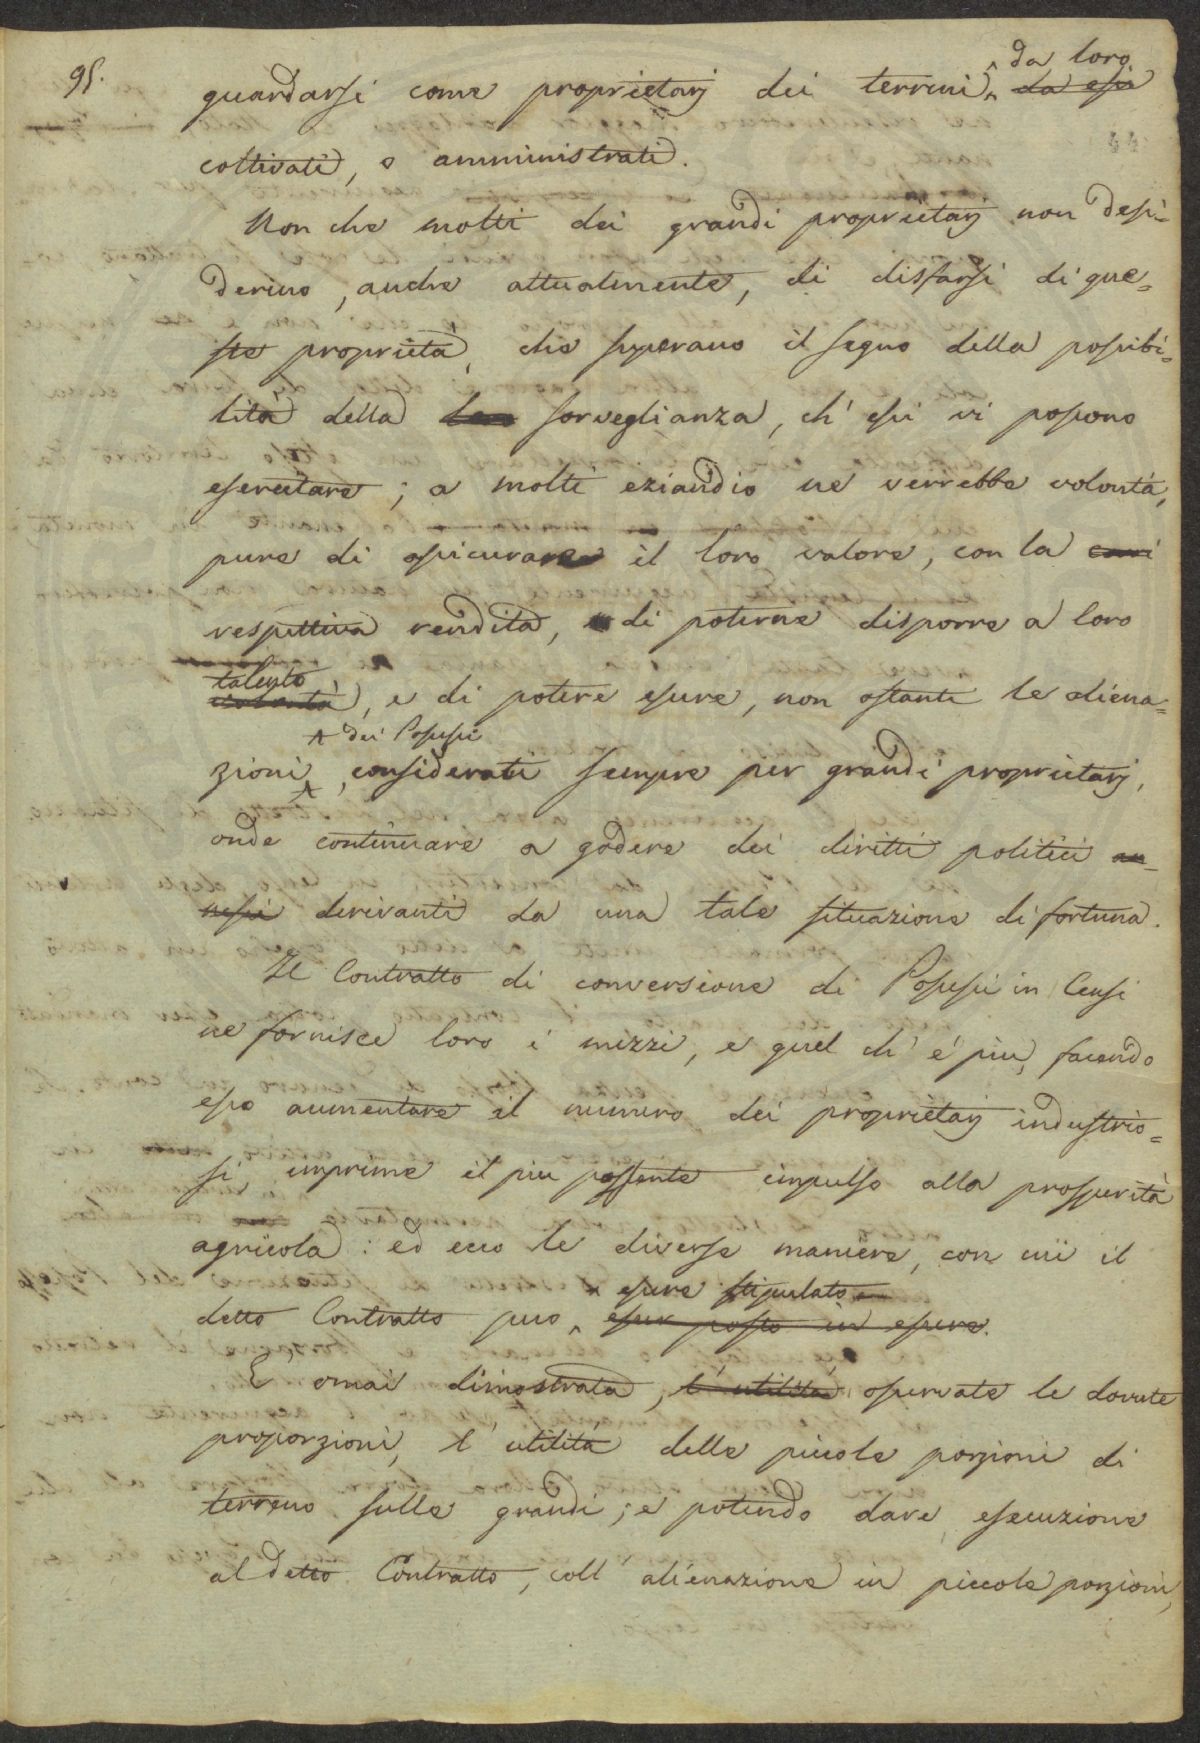 95.
guardarsi come proprietarj dei terreni da loro da essi
44
coltivati, o amministrati.
Non che molti dei grandi proprietarj non desi-
derino, anche attualmente, di disfarsi di que=
ste proprietà, che superano il segno della possibi-
lità della sorveglianza, ch' essi vi possono
esercitare; a molti eziandio ne verrebbe volontà,
pure di assicurare il loro valore, con la
respettiva rendita, di poterne disporre a loro
talento
volontà, e di potere essere, non ostanti le aliena=
dei Possessi
zioni, considerati sempre per grandi proprietarj,
onde continuare a godere dei diritti politici an-
nessi derivanti da una tale situazione di fortuna.
Il Contratto di conversione di Possessi in Censi
ne fornisce loro i mezzi, e quel ch' è più, facendo
esso aumentare il numero dei proprietarj industrio=
si, imprime il piu possente impulso alla prosperità
agricola: ed ecco le diverse maniere, con cui il
essere stipulato
detto Contratto può, esser posto in essere.
E' omai dimostrata, l' utilità osservate le dovute
proporzioni, l' utilità delle piccole porzioni di
terreno sulle grandi; e potendo dare esecuzione
al detto Contratto, coll' alienazione in piccole porzioni,